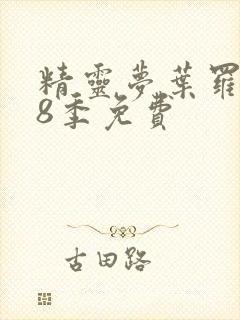 精靈夢葉羅
8季免費
古田路